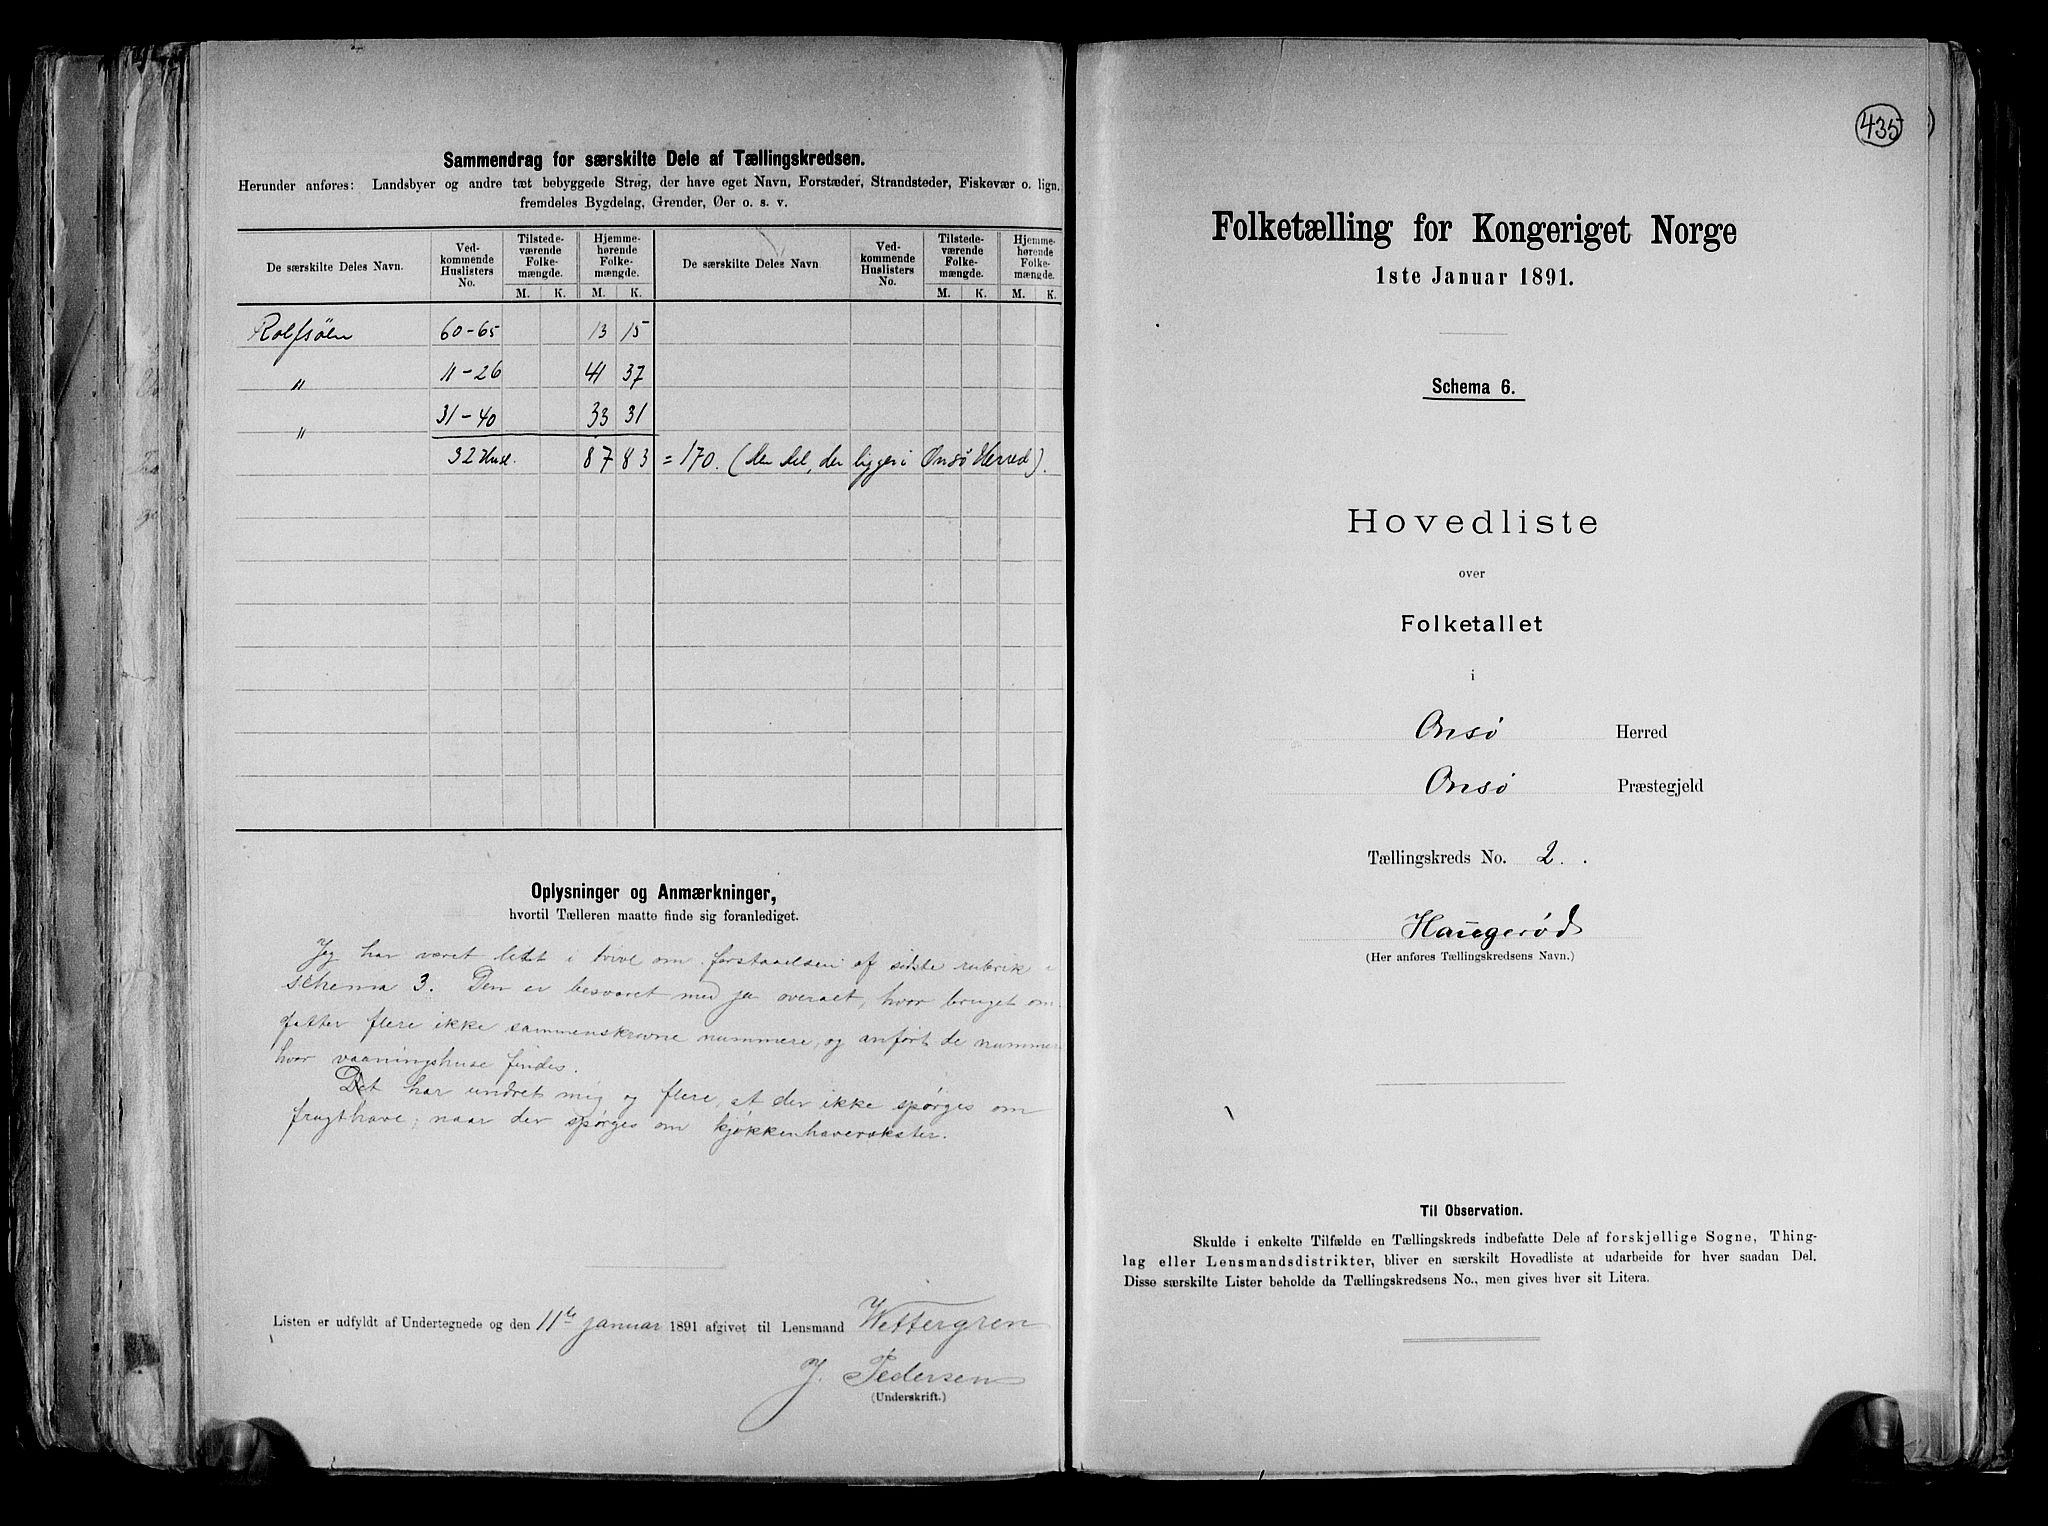 Sammendrag for særskilte Dele af Tællingskredsen.
Herunder anføres: Landsbyer og andre tæt bebyggede Strøg, der have eget Navn, Forstæder, Strandsteder, Fiskevær o. lign.
fremdeles Bygdelag, Grender, Øer o. s. v.
De særskilte Deles Navn. Ved-kommende Huslisters No. Tilstede-værende Folke-mængde. Hjemme-hørende Folke-mængde. De særskilte Deles Navn Ved-kommende Huslisters No. Tilstede-værende Folke-mængde. Hjemme-hørende Folke-mængde.
M. K. M. K. M. K. M. K.
Rolfsöen 60-65 13 15
" 11-26 41 37
" 31-40 33 31
32 Huse. 87 83 = 170. (den del, der ligger i Onsø Herred).
Oplysninger og Anmærkninger,
hvortil Tælleren maatte finde sig foranlediget.
Jeg har været lidt i tvivl om forstaaelsen af sidste rubrik i
schema 3. Den er besvaret med ja overalt, hvor bruget om
fatter flere ikke sammenskrevne nummere, og anført de nummere
hvor vaaningshuse findes.
Det har undret mig og flere, at der ikke spørges om
frugthave, naar der spørges om kjøkkenhavevækster.
Listen er udfyldt af Undertegnede og den 11te januar 1891 afgivet til Lensmand Wettergren
J. Pedersen
(Underskrift.)
435
Folketælling for Kongeriget Norge
1ste Januar 1891.
Schema 6.
Hovedliste
over
Folketallet
i
Onsø Herred
Onsø Præstegjeld
Tællingskreds No. 2.
Haugerød
(Her anføres Tællingskredsens Navn.)
Til Observation.
Skulde i enkelte Tilfælde en Tællingskreds indbefatte Dele af forskjellige Sogne, Thing-
lag eller Lensmandsdistrikter, bliver en særskilt Hovedliste at udarbeide for hver saadan Del.
Disse særskilte Lister beholde da Tællingskredsens No., men gives hver sit Litera.